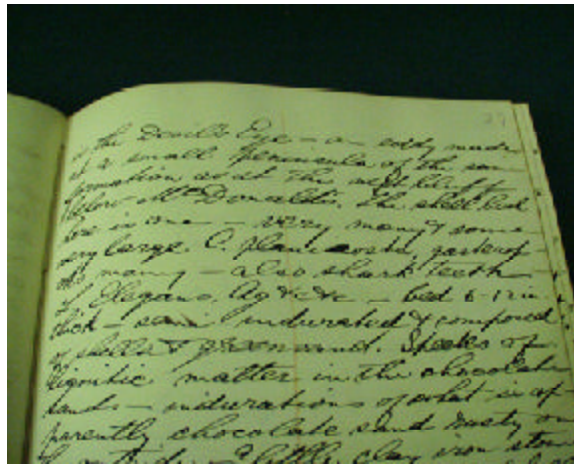 27
in the Devil's Eye — a — eddy made
at a small Peninsula of the same
formation as at the next bluff
below McDonald's. The shell bed
here is one — very many & some
very large C. planicosta, gasterop-
ods many — also shark teeth
of Elegans, Ag &c &c — bed 6-12 in.
thick — semi indurated & composed
of shells & greensand. Specks of
lignitic matter in the chocolate
sands — indurations of what is ap-
parently chocolate sand rusty on
clay iron stone